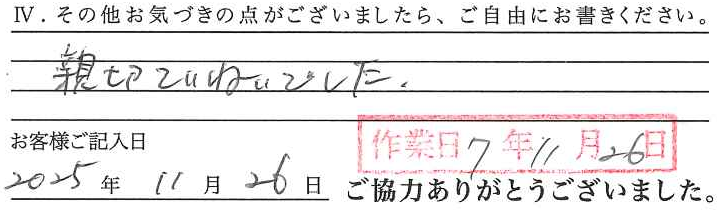 Ⅳ．その他お気づきの点がございましたら、ご自由にお書きください。
親切ていねいでした.
お客様ご記入日
作業日7年11月26日
2025年11月26日
ご協力ありがとうございました。